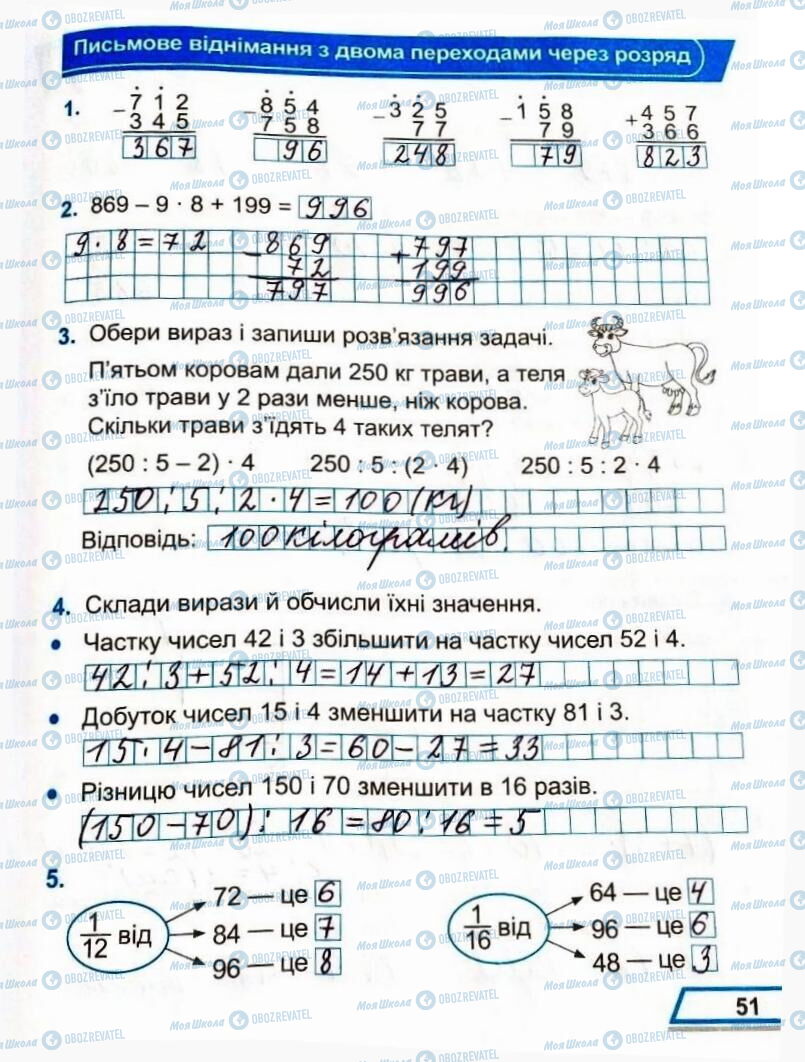 Письмове віднімання з двома переходами через розряд
1.
712 854 325 158 457
– 345 – 758 – 77 – 79 + 366
367 96 248 79 823
2. 869 – 9 · 8 + 199 = 996
9 · 8 = 72 – 869 + 797
72 199
797 996
3. Обери вираз і запиши розв'язання задачі.
П'ятьом коровам дали 250 кг трави, а теля
з'їло трави у 2 рази менше, ніж корова.
Скільки трави з'їдять 4 таких телят?
(250 : 5 – 2) · 4 250 : 5 : (2 · 4) 250 : 5 : 2 · 4
250 : 5 : 2 · 4 = 100 (кг)
Відповідь: 100 кілограмів.
4. Склади вирази й обчисли їхні значення.
• Частку чисел 42 і 3 збільшити на частку чисел 52 і 4.
42 : 3 + 52 : 4 = 14 + 13 = 27
• Добуток чисел 15 і 4 зменшити на частку 81 і 3.
15 · 4 – 81 : 3 = 60 – 27 = 33
• Різницю чисел 150 і 70 зменшити в 16 разів.
(150 – 70) : 16 = 80 : 16 = 5
5.
1/12 від
72 — це 6
84 — це 7
96 — це 8
1/16 від
64 — це 4
96 — це 6
48 — це 3
51
МояШкола OBOZREVATEL